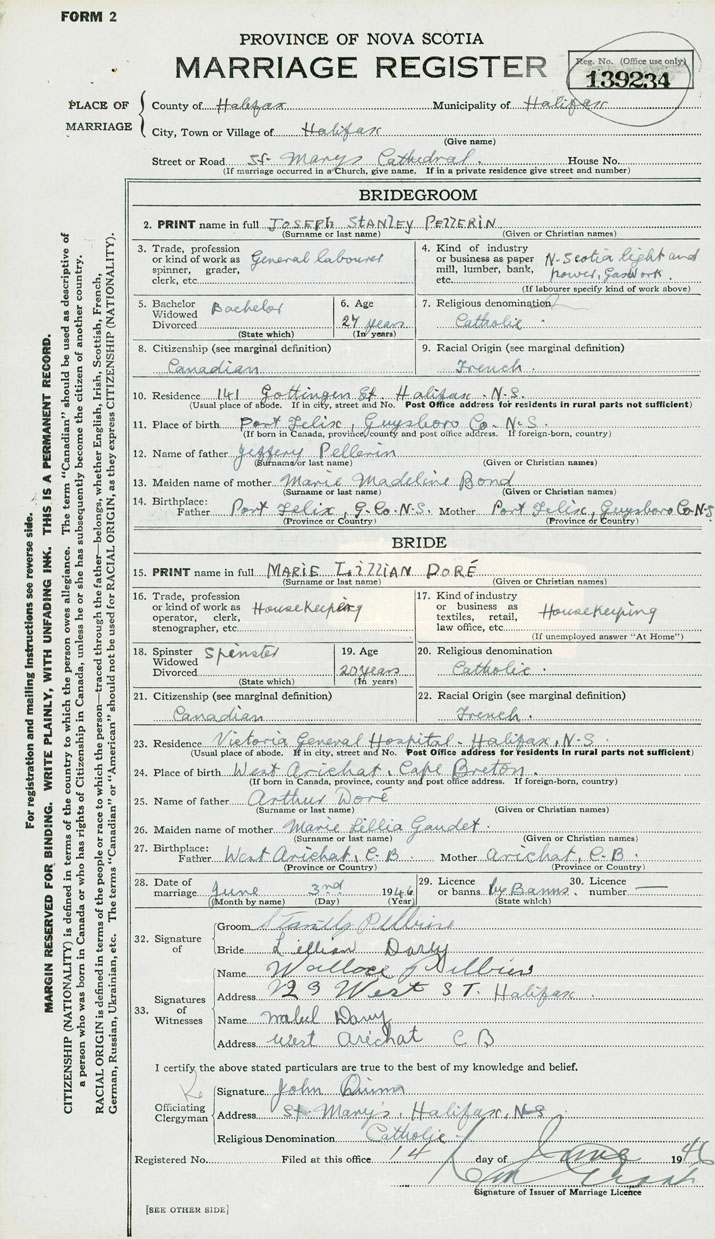 FORM 2
PROVINCE OF NOVA SCOTIA
MARRIAGE REGISTER
Reg. No. (Office use only)
139234
PLACE OF MARRIAGE
County of Halifax Municipality of Halifax
City, Town or Village of Halifax
(Give name)
Street or Road St. Marys Cathedral. House No.
(If marriage occurred in a Church, give name. If in a private residence give street and number)
BRIDEGROOM
2. PRINT name in full JOSEPH STANLEY PELLERIN
(Surname or last name) (Given or Christian names)
3. Trade, profession or kind of work as spinner, grader, clerk, etc. General labourer
4. Kind of industry or business as paper mill, lumber, bank, etc. N-Scotia light and power, Gaswork.
(If labourer specify kind of work above)
5. Bachelor Widowed Divorced Bachelor
(State which)
6. Age 27 years
(In years)
7. Religious denomination
Catholic.
8. Citizenship (see marginal definition)
Canadian
9. Racial Origin (see marginal definition)
French.
10. Residence 141 Gottingen St. Halifax. N.S.
(Usual place of abode. If in city, street and No. Post Office address for residents in rural parts not sufficient)
11. Place of birth Port Felix, Guysboro Co. N-S.
(If born in Canada, province, county and post office address. If foreign-born, country)
12. Name of father Jeffery Pellerin
(Surname or last name) (Given or Christian names)
13. Maiden name of mother Marie Madeline Bond
(Surname or last name) (Given or Christian names)
14. Birthplace: Father Port Felix, G. Co. N-S. Mother Port Felix, Guysboro Co. N-S
(Province or Country) (Province or Country)
BRIDE
15. PRINT name in full MARIE LILLIAN DORÉ
(Surname or last name) (Given or Christian names)
16. Trade, profession or kind of work as operator, clerk, stenographer, etc. Housekeeping
17. Kind of industry or business as textiles, retail, law office, etc. Housekeeping
(If unemployed answer "At Home")
18. Spinster Widowed Divorced Spenster
(State which)
19. Age 20 years
(In years)
20. Religious denomination
Catholic.
21. Citizenship (see marginal definition)
Canadian
22. Racial Origin (see marginal definition)
French.
23. Residence Victoria General Hospital. Halifax, N-S.
(Usual place of abode. If in city, street and No. Post Office address for residents in rural parts not sufficient)
24. Place of birth West Arichat, Cape Breton.
(If born in Canada, province, county and post office address. If foreign-born, country)
25. Name of father Arthur Doré
(Surname or last name) (Given or Christian names)
26. Maiden name of mother Marie Lellia Gaudet.
(Surname or last name) (Given or Christian names)
27. Birthplace: Father West Arichat, C-B. Mother Arichat, C-B.
(Province or Country) (Province or Country)
28. Date of marriage June 3rd 1946
(Month by name) (Day) (Year)
29. Licence or banns by Banns.
(State which)
30. Licence number —
32. Signature of
Groom
Bride Lillian Dary
33. Signatures of Witnesses
Name Wallace
Address 29 West ST. Halifax.
Name Mabel Dary
Address West Arichat C B
I certify the above stated particulars are true to the best of my knowledge and belief.
Officiating Clergyman
Signature John Quinn
Address St Marys, Halifax, N-S.
Religious Denomination Catholic
Registered No. Filed at this office 14 day of June 1946
Signature of Issuer of Marriage Licence
[SEE OTHER SIDE]
For registration and mailing instructions see reverse side.
MARGIN RESERVED FOR BINDING. WRITE PLAINLY, WITH UNFADING INK. THIS IS A PERMANENT RECORD.
CITIZENSHIP (NATIONALITY) is defined in terms of the country to which the person owes allegiance. The term "Canadian" should be used as descriptive of
a person who was born in Canada or who has rights of Citizenship in Canada, unless he or she has subsequently become the citizen of another country.
RACIAL ORIGIN is defined in terms of the people or race to which the person—traced through the father—belongs, whether English, Irish, Scottish, French,
German, Russian, Ukrainian, etc. The terms "Canadian" or "American" should not be used for RACIAL ORIGIN, as they express CITIZENSHIP (NATIONALITY).